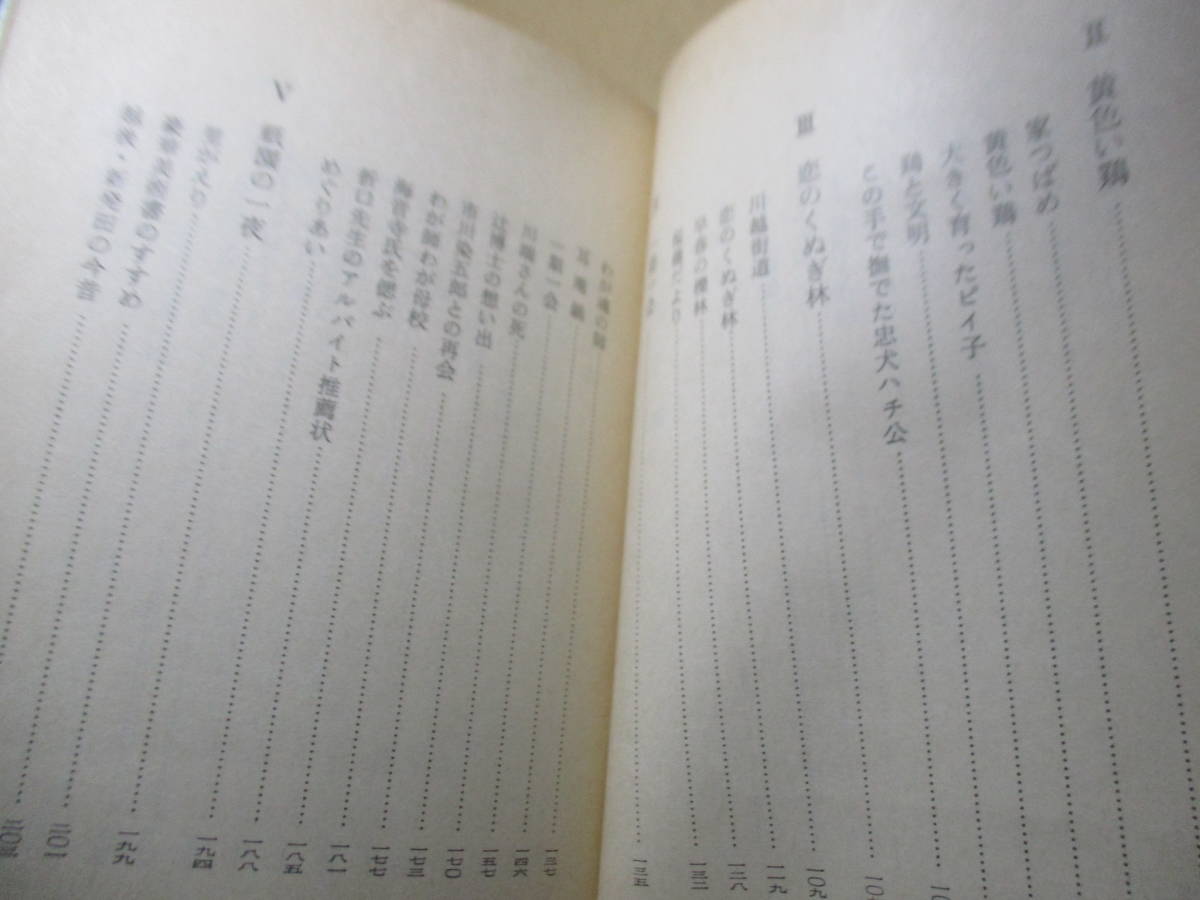 II 黄色い鶏
家つばめ
黄色い鶏
大きく育ったピイ子
鶏と文明
この手で撫でた忠犬ハチ公
III 恋のくぬぎ林
川越街道 一〇九
恋のくぬぎ林 一一九
早春の 一二八
だより 一三二
一三五
わが 一三七
耳 一四六
一期一会 一五七
川端さんの死 一七〇
辻博士の想い出 一七三
市川染五郎との再会 一七七
わが師わが母校 一八一
海音寺氏を偲ぶ 一八五
折口先生のアルバイト推薦状 一八八
めぐりあい 一九四
V 祇園の一夜 一九九
里がえり 二〇一
豪華美術書のすすめ
の今昔